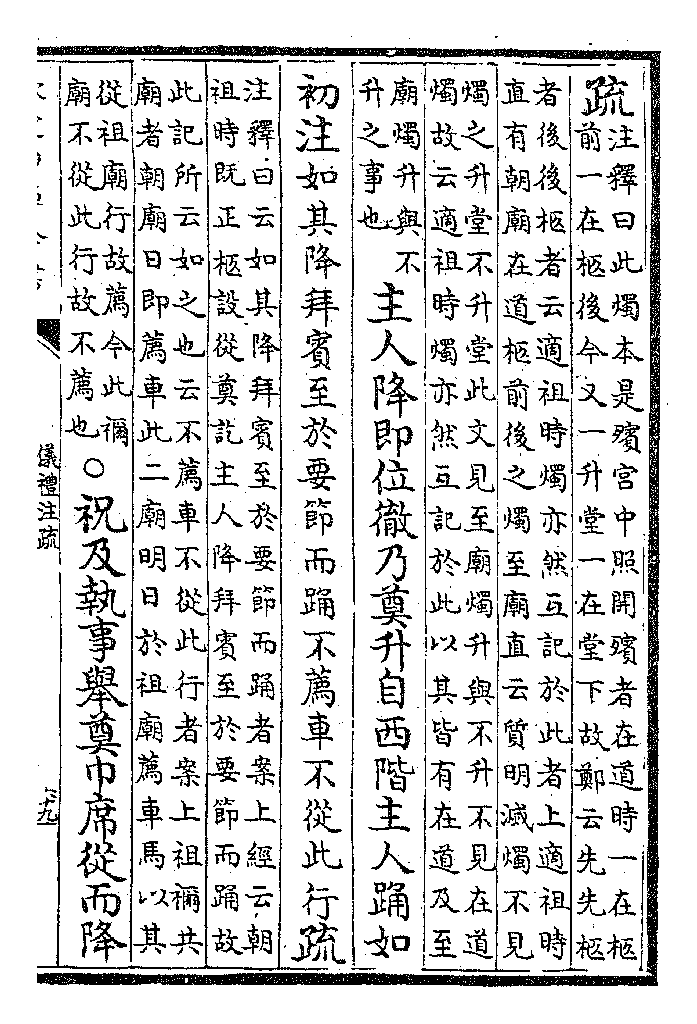 疏注釋曰此燭本是殯宮中照開殯者在道時一在柩
前一在柩後今又一升堂一在堂下故鄭云先先柩
者後後柩者云適祖時燭亦然互記於此者上適祖時
直有朝廟在道柩前後之燭至廟直云質明滅燭不見
燭之升堂不升堂此文見至廟燭升與不升不見在道
燭故云適祖時燭亦然互記於此以其皆有在道及至
廟燭升與不
升之事也
主人降即位徹乃奠升自西階主人踊如
初注如其降拜賓至於要節而踊不薦車不從此行疏
注釋曰云如其降拜賓至於要節而踊者案上經云朝
祖時既正柩設從奠訖主人降拜賓至於要節而踊故
此記所云如之也云不薦車不從此行者案上祖禰共
廟者朝廟日即薦車此二廟明日於祖廟薦車馬以其
從祖廟行故薦今此禰
廟不從此行故不薦也
○祝及執事舉奠巾席從而降
儀禮注疏